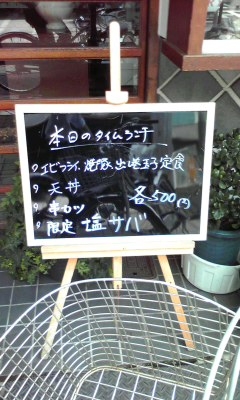 本日のタイムランチ
エビフライ、焼豚、出し巻玉子定食
天丼
串カツ
各500円
限定 塩サバ